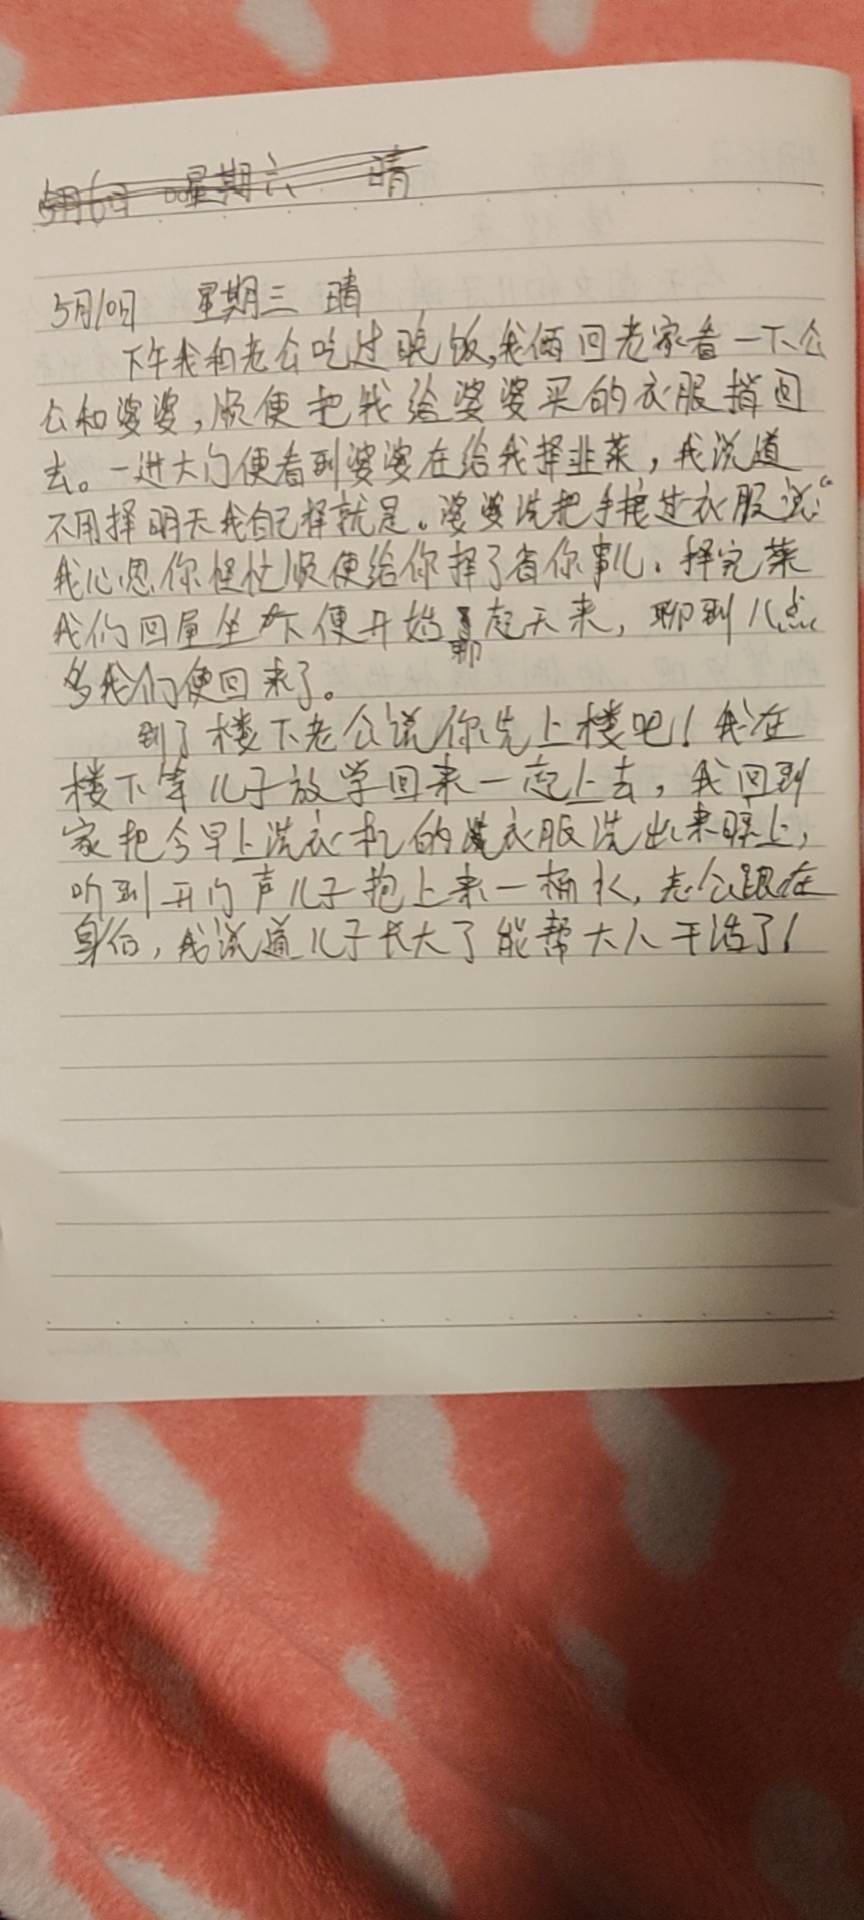 5月6日 星期六 晴
5月10日 星期三 晴
下午我和老公吃过晚饭,我俩回老家看一下公
公和婆婆,顺便把我给婆婆买的衣服捎回
去。一进大门便看到婆婆在给我择韭菜,我说道
不用择明天我自己择就是。婆婆洗把手接过衣服说:“
我心思你怪忙顺便给你择了省你事儿。择完菜
我们回屋坐下便开始聊起天来,聊到八点
多我们便回来了。
到了楼下老公说你先上楼吧!我在
楼下等儿子放学回来一起上去,我回到
家把今早上洗衣机的衣服洗出来晾上,
听到开门声儿子抱上来一桶水,老公跟在
身后,我说道儿子长大了能帮大人干活了!